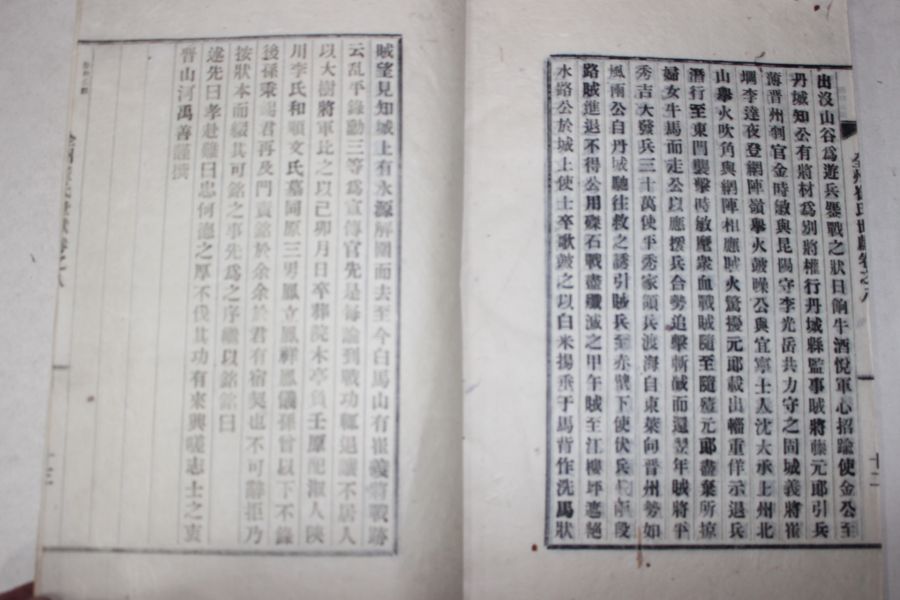 出沒山谷爲遊兵鏖戰之狀日餉牛酒悅軍心招諭使金公至
丹城知公有將材爲別將權行丹城縣監事賊將藤元郞引兵
薄晉州判官金時敏與昆陽守李光岳共力守之固城義將崔
堈李達夜登網陣嶺擧火皷噪公與宜寧士人沈大承上州北
山擧火吹角與網陣相應賊火驚擾元郞載出輜重佯示退兵
潛行至東門襲擊時敏麾衆血戰賊隨至隨殪元郞盡棄所掠
婦女牛馬而走公以應援兵合勢追擊斬馘而還翌年賊將平
秀吉大發兵三十萬使平秀家領兵渡海自東萊向晉州勢如
風雨公自丹城馳往救之誘引賊兵至赤壁下使伏兵 段
路賊進退不得公用礫石戰盡殲滅之甲午賊至江樓坪遮絕
水路公於城上使士卒歌皷之以白米揚垂于馬背作洗馬狀
全州崔氏世獻卷之八
十二
賊望見知城上有水源解圍而去至今白馬山有崔義將戰跡
云亂平錄勳三等爲宣傳官先是每論到戰功輒退讓不居人
以大樹將軍比之以己卯月日卒葬院木亭負壬原配淑人陜
川李氏和順文氏墓同原三男鳳立鳳祥鳳儀孫曾以下不錄
後孫秉錫君再及門責銘於余余於君有宿契也不可辭拒乃
按狀本而綴其可銘之事先爲之序繼以銘銘曰
述先曰孝赴難曰忠何德之厚不伐其功有來興嗟志士之衷
晉山河禹善謹撰
全州崔氏世獻卷之八
十三